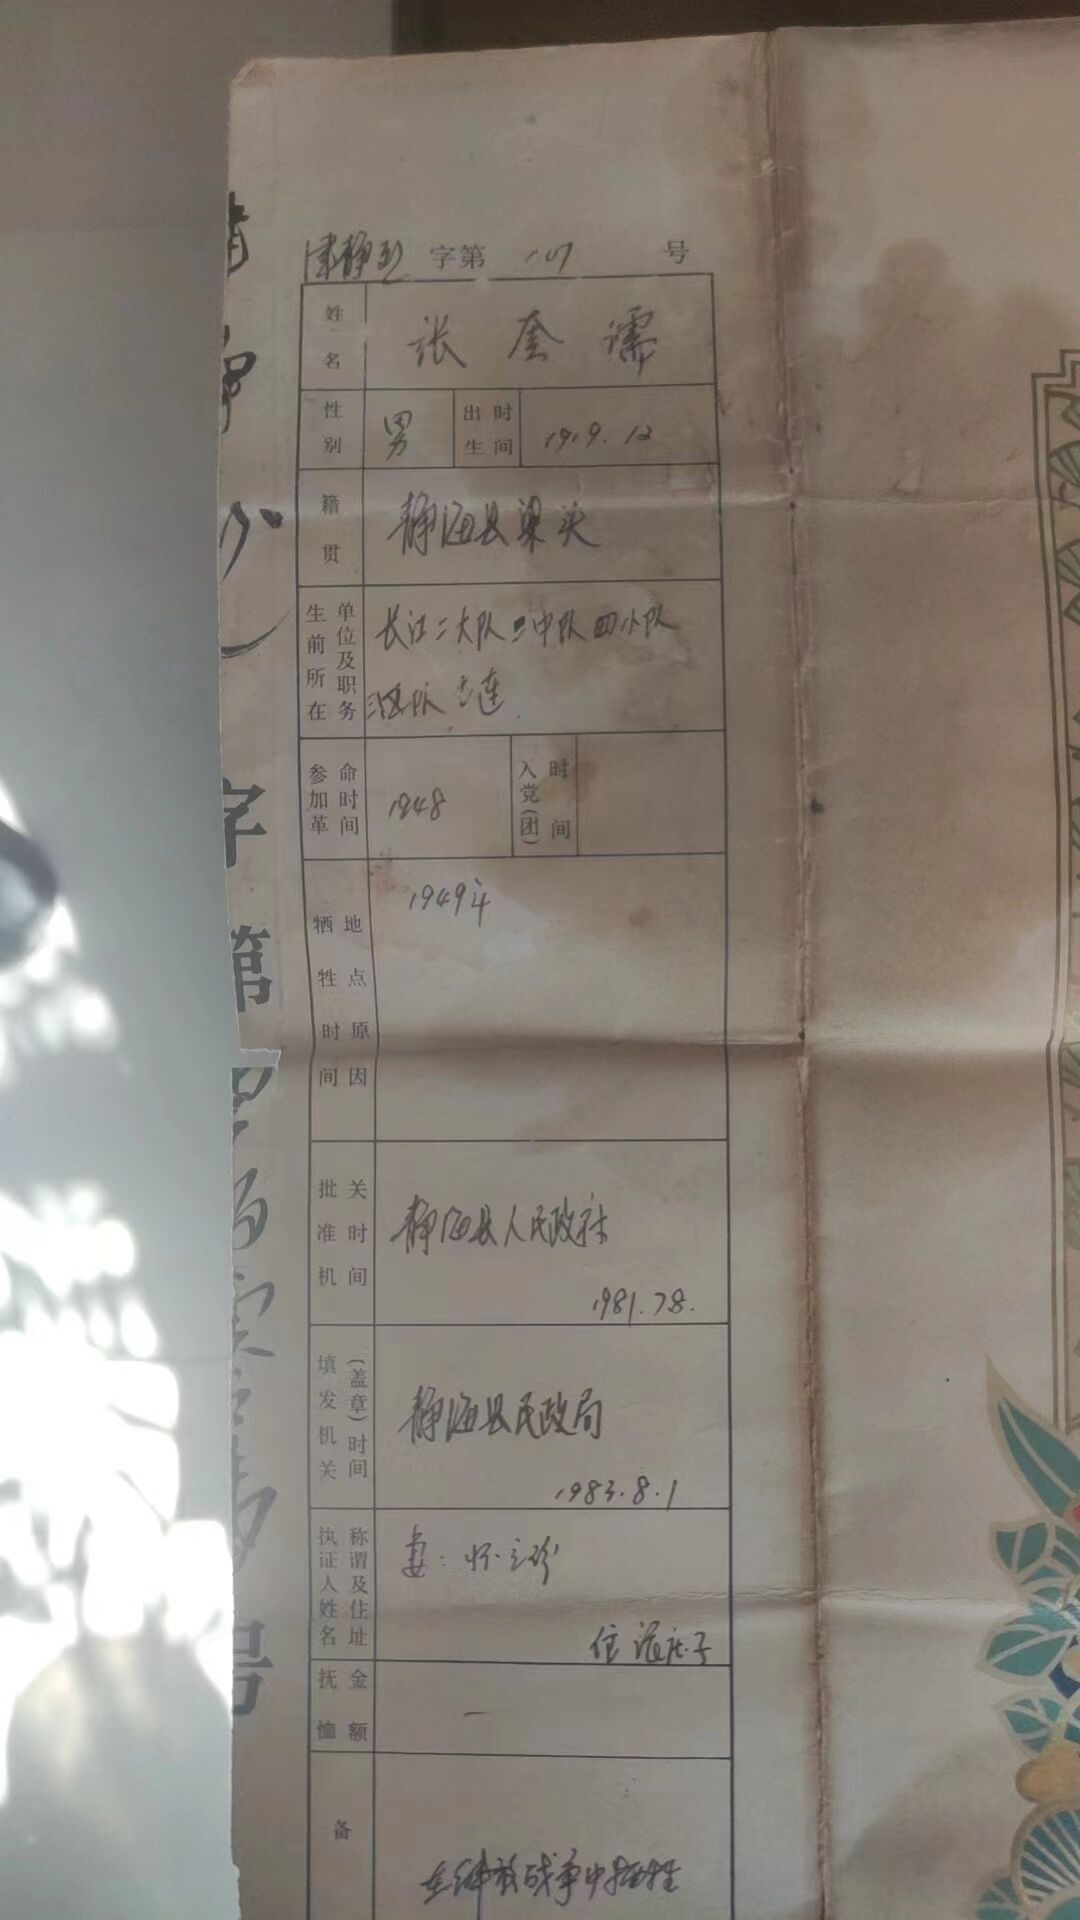 津静烈 字第 107 号
姓名 张奎儒
性别 男 出生时间 1919.12
籍贯 静海县梁头
生前所在单位及职务 长江二大队二中队四小队
区队 连
参加革命时间 1948 入党(团)时间
牺牲时间地点原因 1949年
批准机关时间 静海县人民政府
1981.7.8.
填发机关(盖章)时间 静海县民政局
1983.8.1
执证人姓名称谓及住址 妻:
住
抚恤金额 一
备
在解放战争中牺牲
字第
号